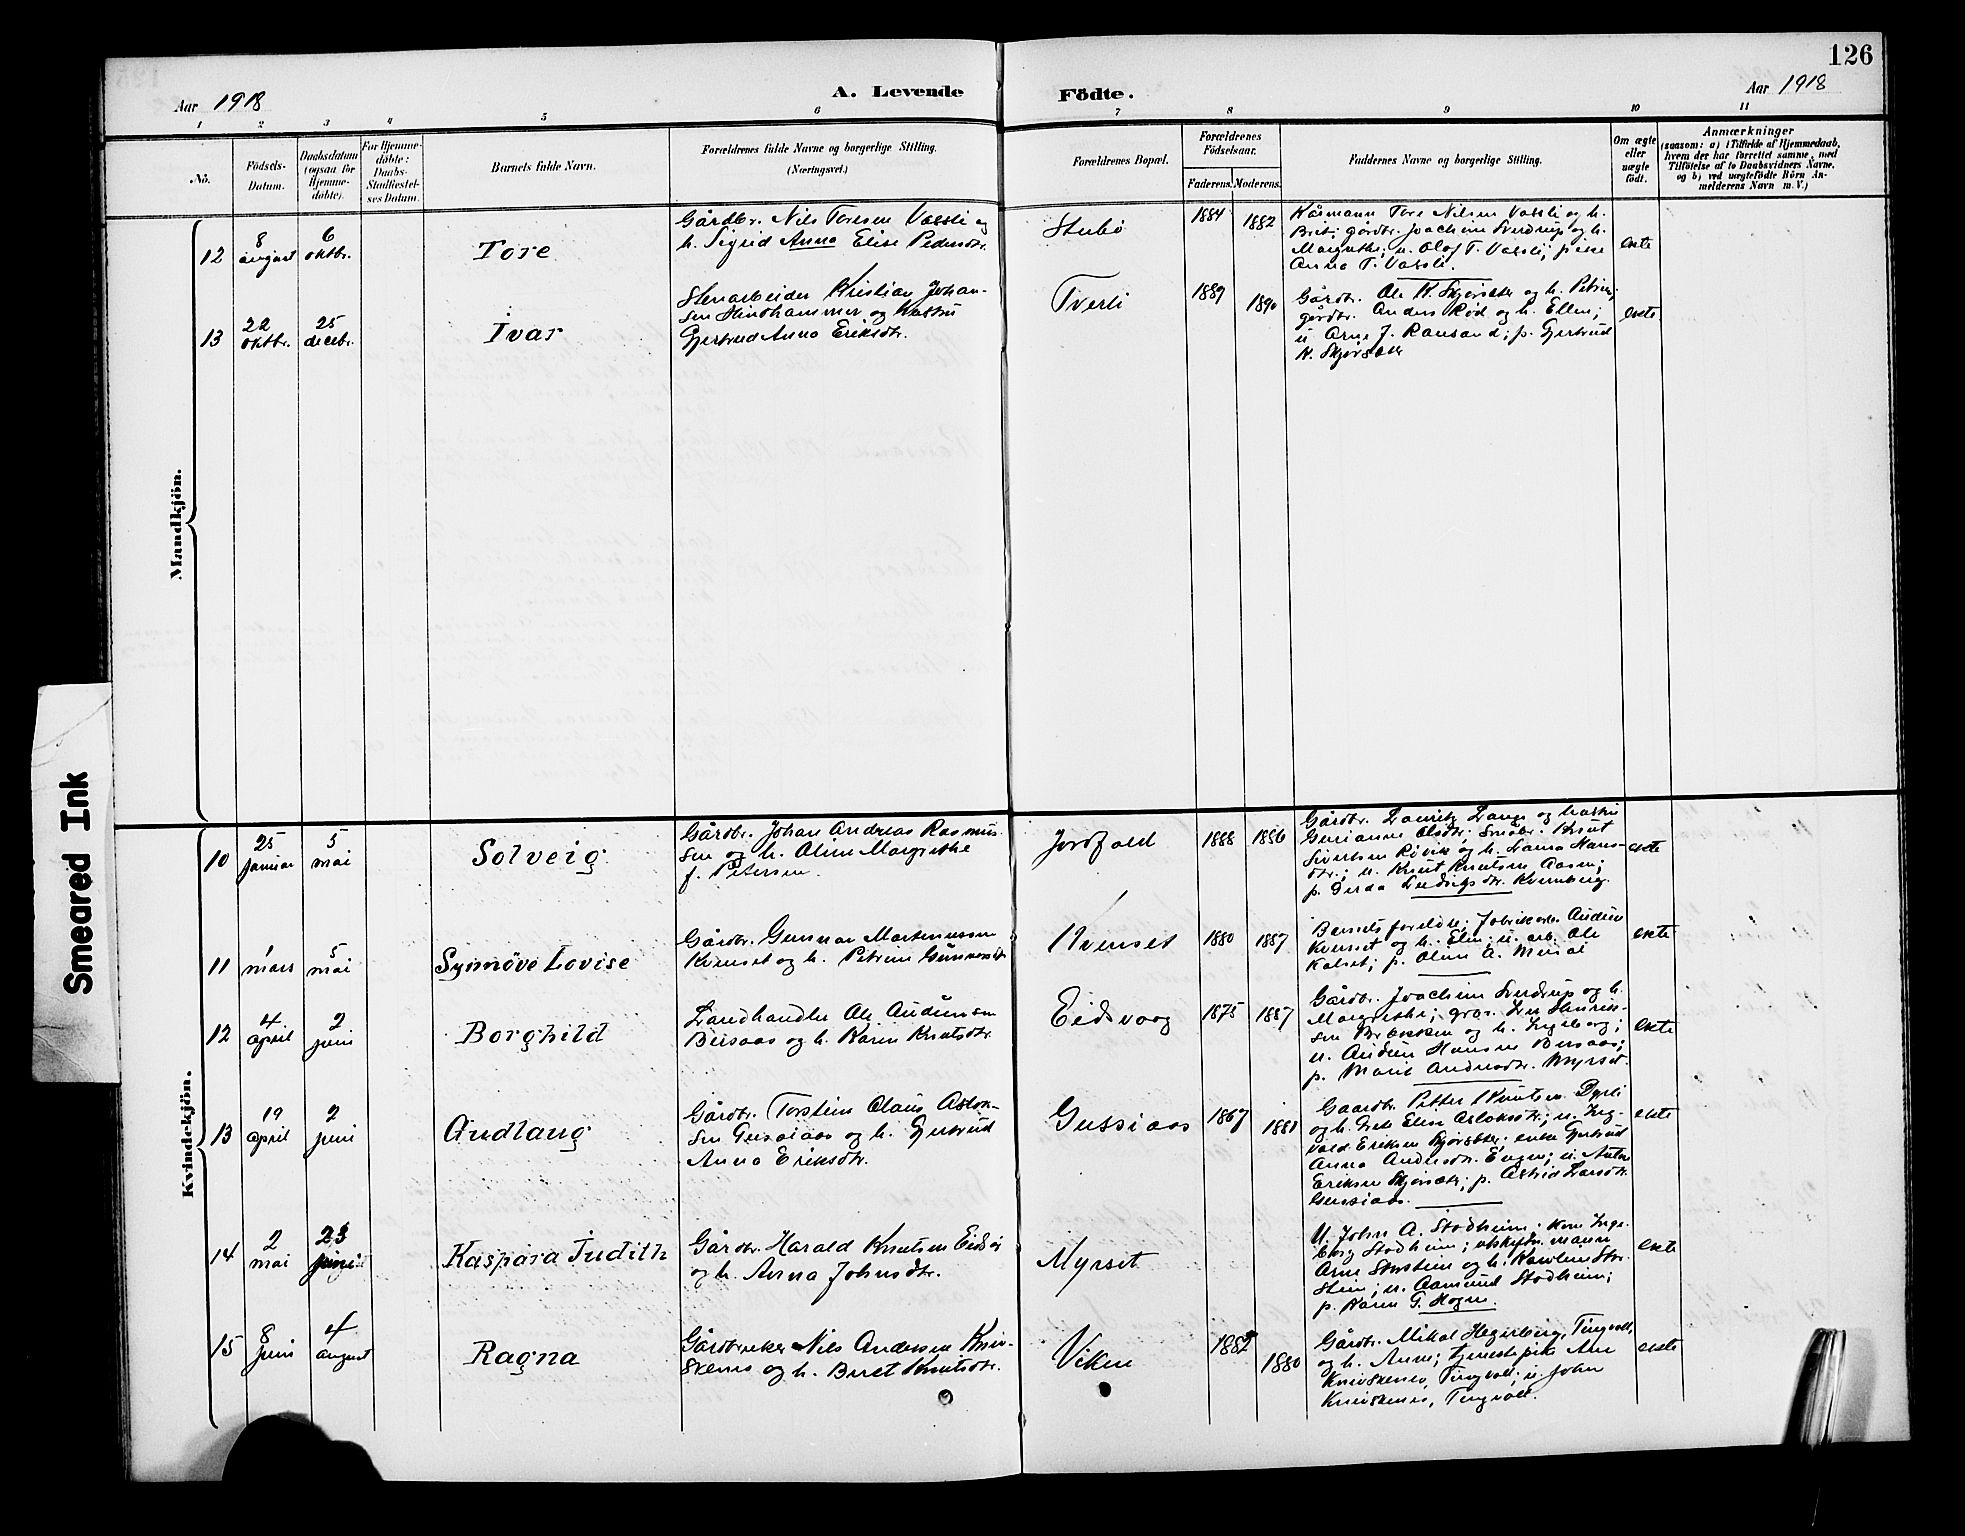 126
Aar 1918
A. Levende Födte.
Aar 1918
1 2 3 4 5 6 7 8 9 10 11
No.
Födsels-
Datum.
Daabsdatum
(ogsaa for
Hjemme-
döbte).
For Hjemme-
döbte:
Daabs-
Stadfæstel-
ses Datum.
Barnets fulde Navn.
Forældrenes fulde Navne og borgerlige Stilling.
(Næringsvei.)
Forældrenes Bopæl.
Forældrenes
Födselsaar.
Faderens. Moderens.
Faddernes Navne og borgerlige Stilling.
Om ægte
eller
uægte
födt.
Anmærkninger
(saasom: a) i Tilfælde af Hjemmedaab,
hvem der har forrettet samme, med
Tilföielse af to Daabsvidners Navne,
og b) ved uægtefödte Börn An-
melderens Navn m. V.)
Mandkjön.
12
8
august
6
oktbr.
Tore
Gårdbr. Nils Toresen Vassli og
h. Sigrid Anna Elise Pedersdtr.
Stubö
1884
1882
Kårmann Tore Nilsen Vassli og h.
Brit; gårdbr. Joachim Sverdrup og h.
Margrethe; u. Olof T. Vassli; pike
Anna T. Vassli.
ekte
13
22
oktbr.
25
decbr.
Ivar
Stenarbeider Kristian Johan-
sen Stindhammer og hustru
Gjertrud Anna Eriksdtr.
Tverli
1889
1890
Gårdbr. Ole K. Skjörsæter og h. Petrine;
gårdbr. Anders Röd og h. Ellen;
u Arne J. Ransand; p. Gjertrud
K. Skjörsæter
ekte
Kvindekjön.
10
25
januar
5
mai
Solveig
Gårdbr. Johan Andreas Rasmus-
sen og h. Oline Margrethe
f. Petersen.
Jordfald
1888
1886
Gårdbr. Lauritz Lange og hustru
Gurianna Olsdtr. Småbr. Knut
Sivertsen Rövik og h. Laura Hans-
dtr.; u. Knut Knutsen Aasen;
p. Gerda Ludvigsdtr. Kvernberg.
ekte
11
1
mars
5
mai
Synnöve Lovise
Gårdbr. Gunnar Martinussen
Kvenset og h. Petrine Gunnarsdtr.
Kvenset
1880
1887
Barnets foreldre; Fabrikarb. Audun
Kvenset og h. Elen; u. arb. Ole
Kalset; p. Oline A. Meisal
ekte
12
4
april
2
juni
Borghild
Landhandler Ole Audunsen
Bersaas og h. Karen Knutsdtr.
Eidsvaag
1875
1887
Gårdbr. Joachim Sverdrup og h.
Margrethe;
og h. Ingeborg;
u. Audun Hansen Bersaas;
p. Marit Andersdtr. Myrset.
ekte
13
19
april
2
juni
Audlaug
Gårdbr. Torstein Claus Aslak-
sen Gussiaas og h. Gjertrud
Anna Eriksdtr.
Gussiaas
1867
1881
Gaardbr. Petter Knutsen Dyrli
og h. Grete Elise Aslaksdtr; u. Ing-
vald Eriksen Skjörsæter; enke Gjertrud
Anna Andersdtr. Evgen; u. Anton
Eriksen Skjörsæter; p. Astrid Larsdtr.
Gussiaas.
ekte
14
2
mai
23
juni
Kaspara Judith
Gårdbr. Harald Knutsen Eidsö
og h. Anna Johnsdtr.
Myrset
U. John A. Stodheim; kone Inge-
borg Stodheim; utskiftn.mann
Arne Storstein og h. Karoline Stor-
stein; u. Aamund Stodheim;
p. Karen G. Hogne.
ekte
15
8
juni
4
august
Ragna
Gårdbruker Nils Andersen Kniv-
skenes og h. Beret Knutsdtr.
Viken
1882
1880
Gårdbr. Mikal Hegerberg, Tingvoll,
og h. Anne; tjenestepike Ane
Knivskenes, Tingvoll; u. John
Knivskenes, Tingvoll.
ekte
Smeared Ink